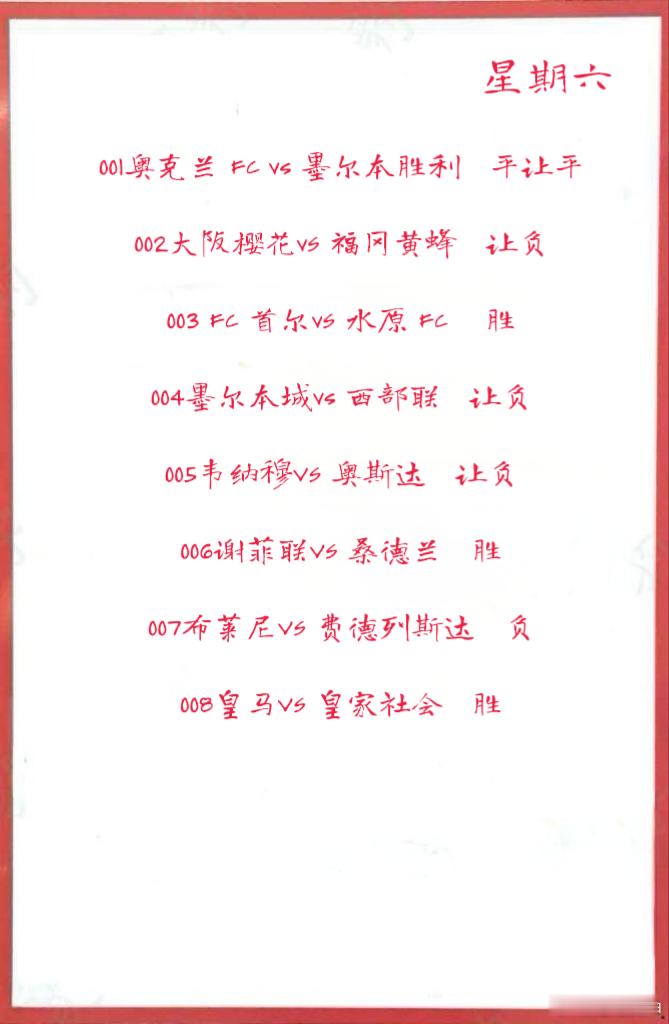 星期六
001奥克兰 FC vs 墨尔本胜利 平让平
002大阪樱花vs 福冈黄蜂 让负
003 FC 首尔vs 水原 FC 胜
004墨尔本城vs 西部联 让负
005韦纳穆vs 奥斯达 让负
006谢菲联vs 桑德兰 胜
007布莱尼vs 费德列斯达 负
008皇马vs 皇家社会 胜